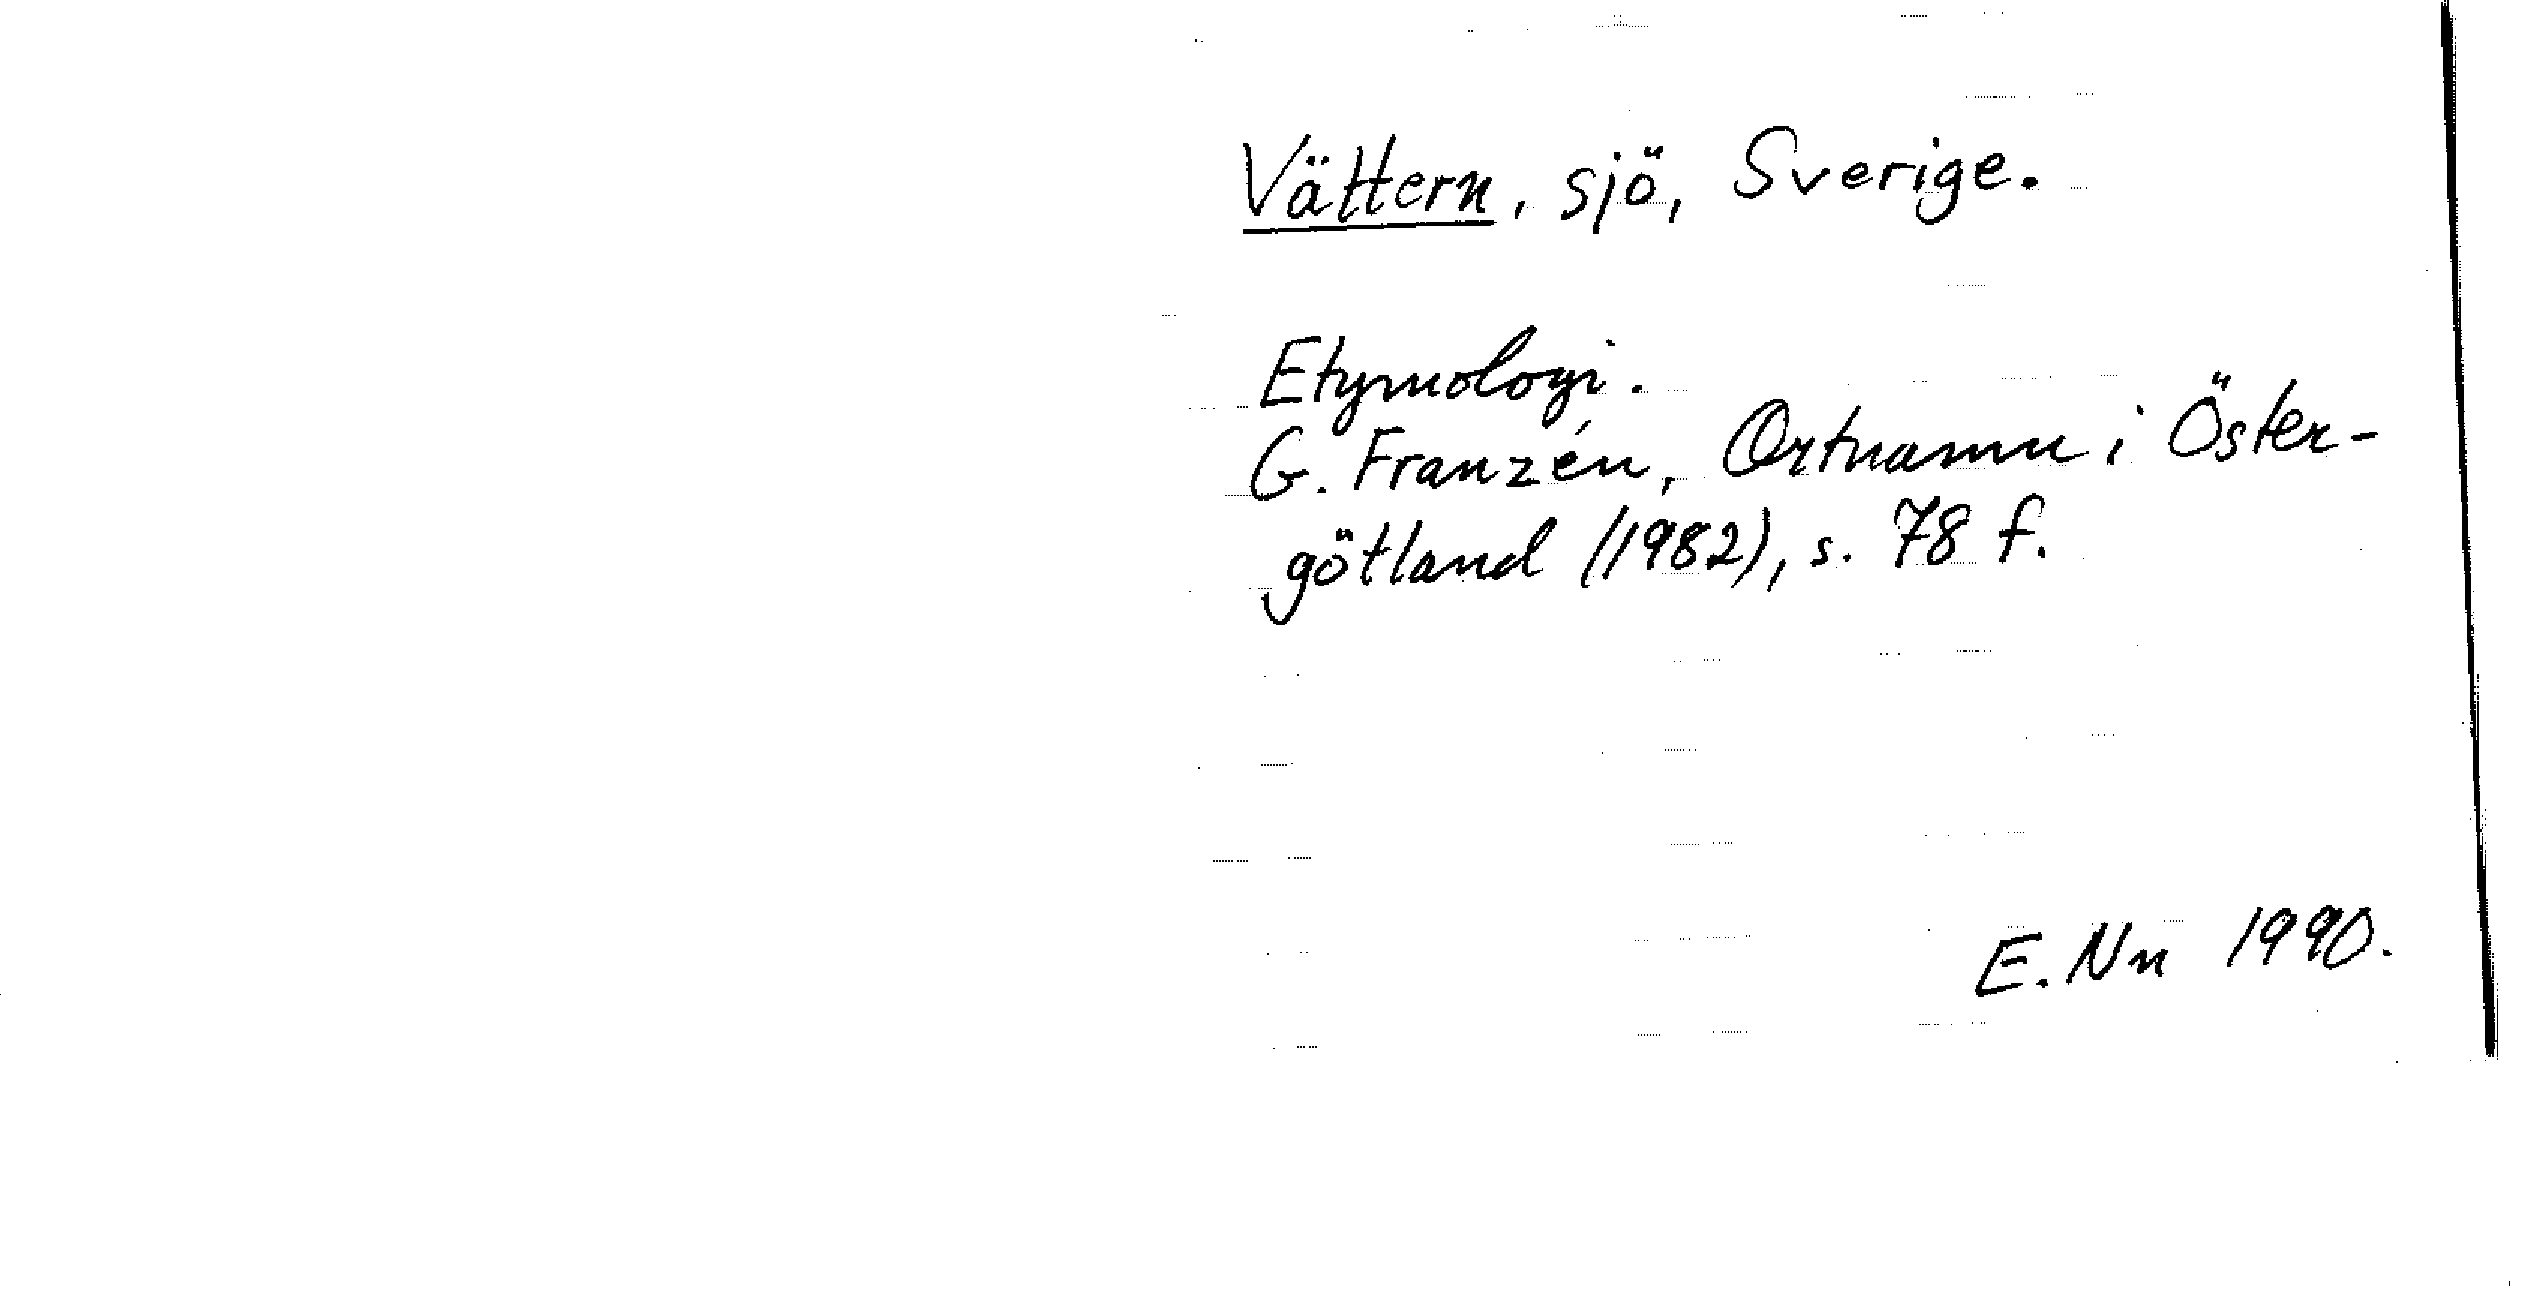 Vättern, sjö, Sverige.
Etymologi.
G. Franzén, Ortnamn i Öster-
götland (1982), s. 78 f.
E. Nn 1990.